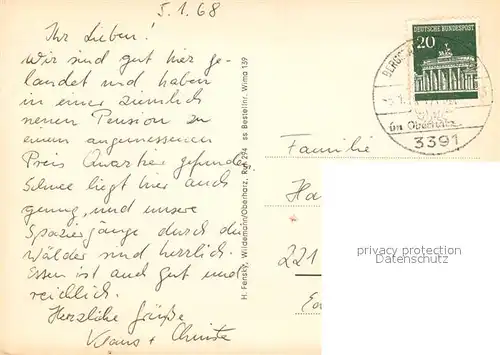 5.1.68
Ihr Lieben!
Wir sind gut hier ge-
landet und haben
in einer ziemlich
neuen Pension zu
einem angemessenen
Preis Quartier gefunden.
Schnee liegt hier auch
genug, und unsere
Spaziergänge durch die
Wälder sind herrlich.
Essen ist auch gut und
reichlich.
Herzliche Grüße
Klaus + Christa
H. Fensky, Wildemann/Oberharz, Ruf 294 ss. Bestellnr. Wima 139
DEUTSCHE BUNDESPOST
20
im Oberharz
3391
Familie
Ha
221
privacy protection